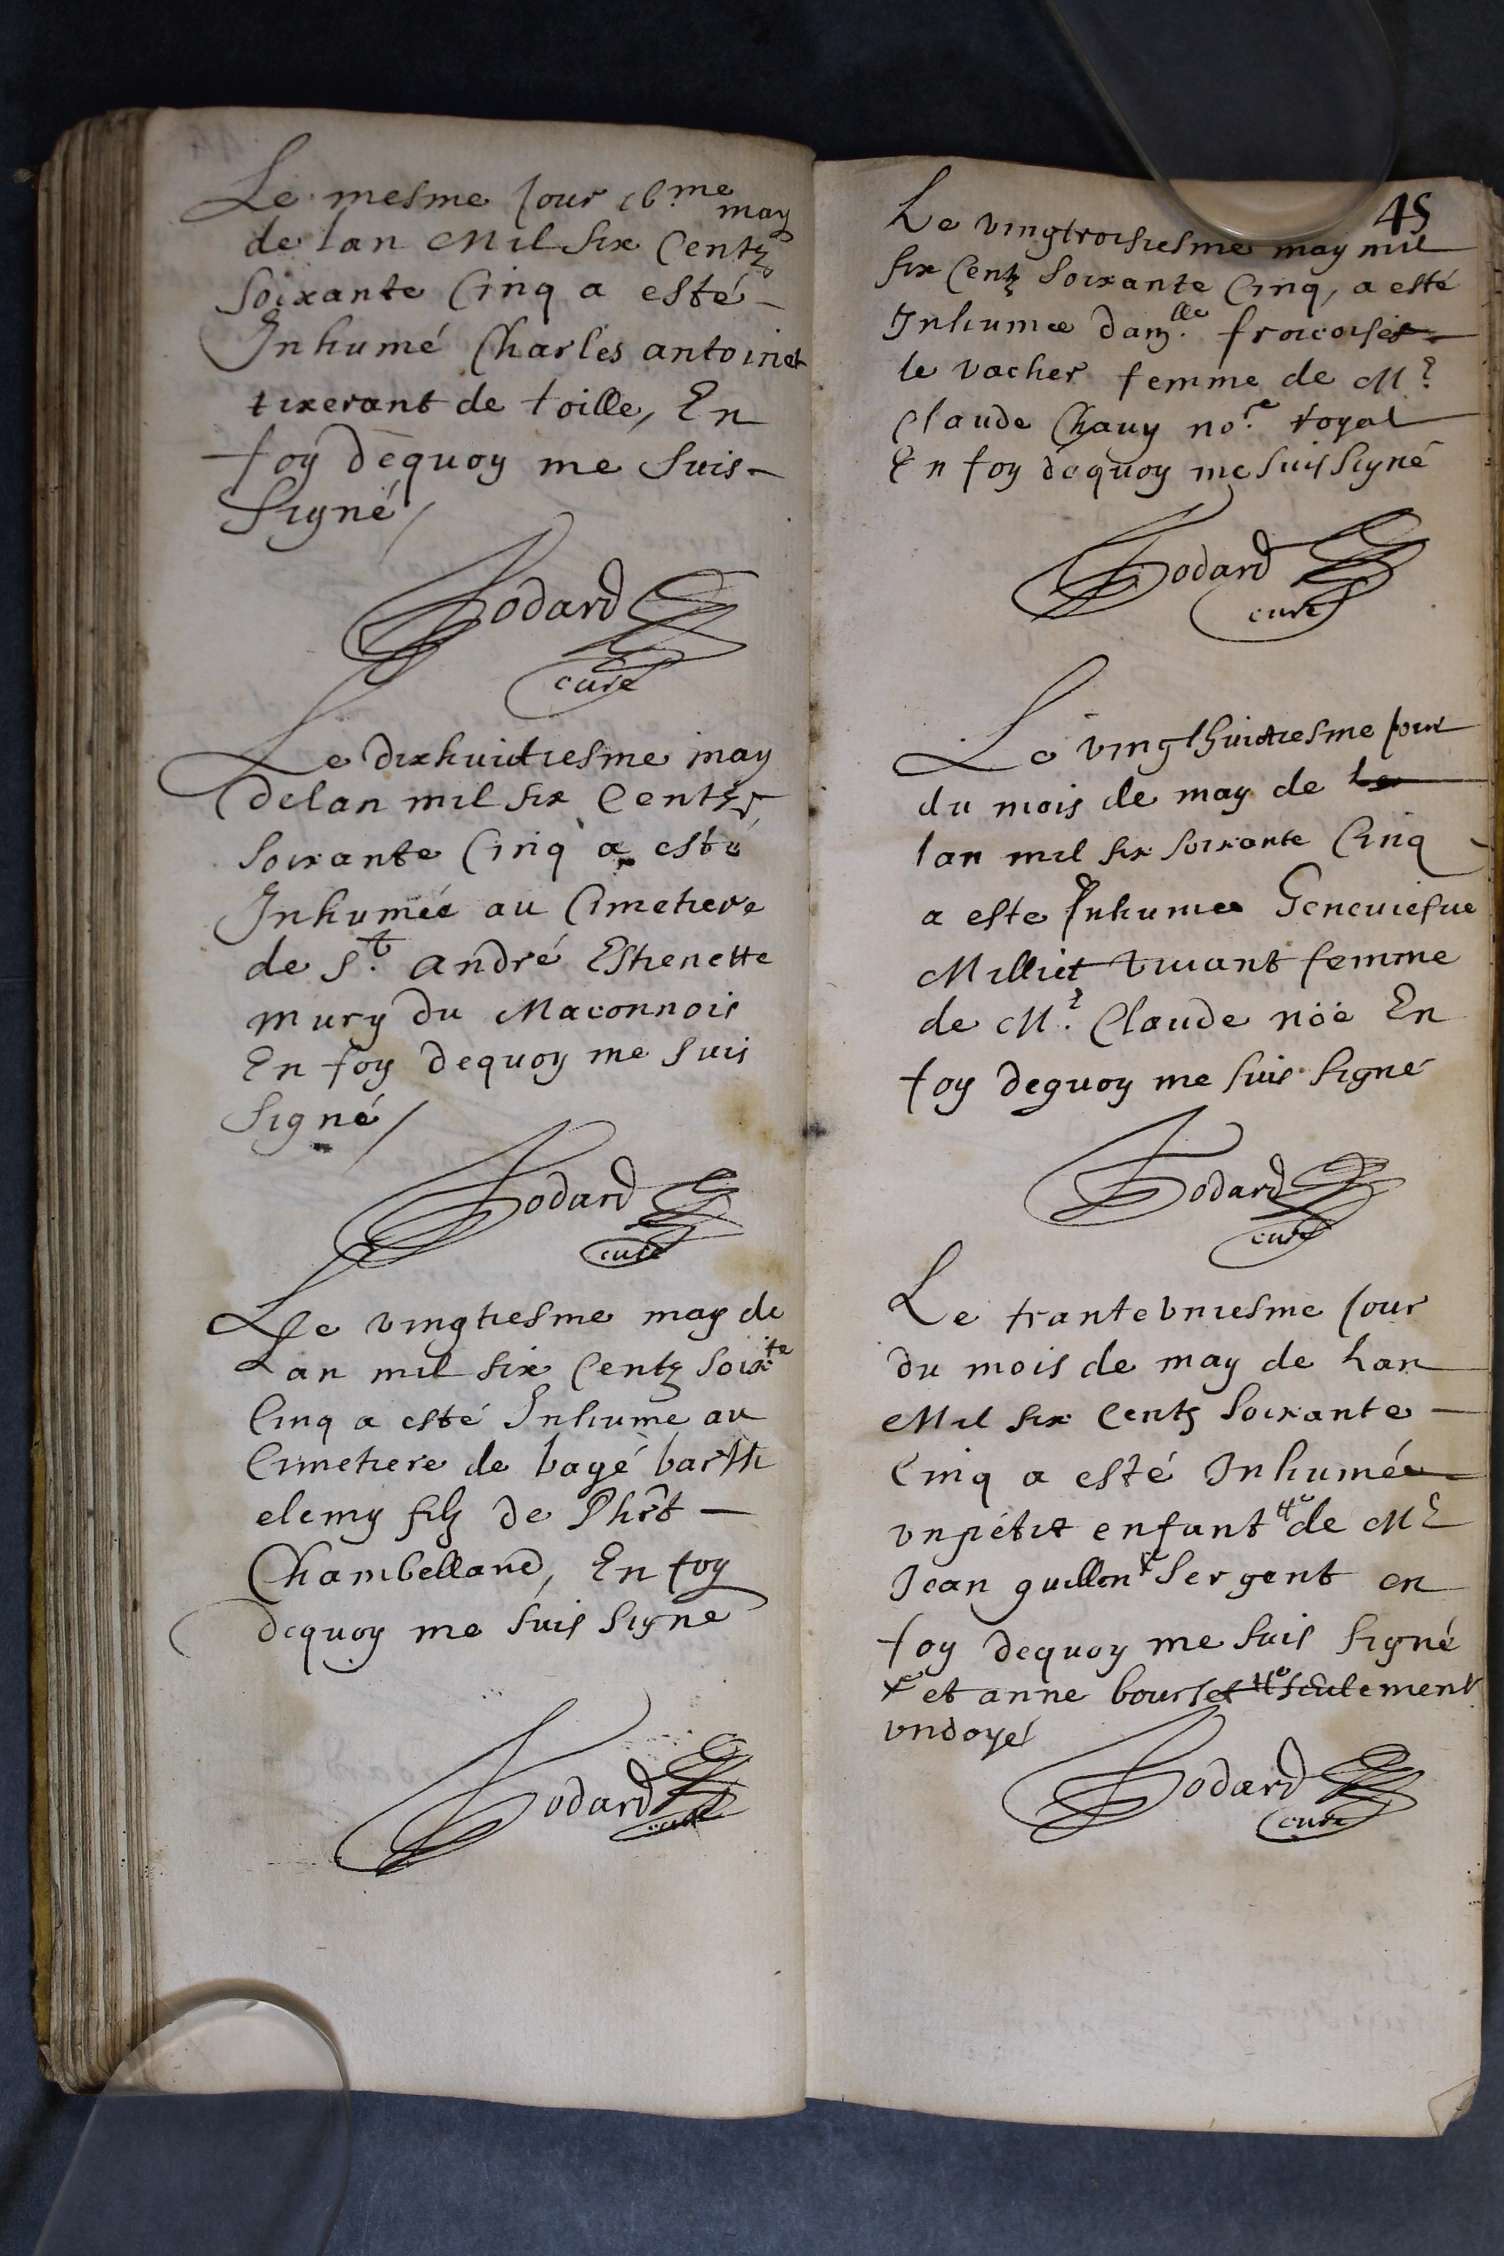 Le mesme jour 16.me may
de lan Mil six Centz
soixante Cinq a esté
Inhumé Charles antoinet
tixerant de toille, En
foy dequoy me suis
signé /
Godard
curé
Le dixhuictiesme may
delan mil six Centz
soixante Cinq a esté
Inhumée au Cimetiere
de S.t André Estienette
mury du Maconnois
En foy dequoy me suis
signé /
Godard
curé
Le vingtiesme may de
Lan mil six Centz soix.te
Cinq a esté Inhume au
Cimetiere de bagé barth
elemy filz de Phir̃t
Chambelland, En foy
dequoy me suis signe
Godard
curé
45
Le vingtroisiesme may mil
six Centz soixante Cinq, a esté
Inhumee dam.lle francoise
le vacher femme de M.e
Claude Chavy no.re royal
En foy dequoy me suis signé
Godard
curé
Le vingthuictiesme jour
du mois de may de
lan mil six soixante Cinq
a este Inhumee Geneviefue
Milliet vivant femme
de M.e Claude nöe En
foy dequoy me suis signé
Godard
curé
Le trante vniesme jour
du mois de may de Lan
Mil six Centz soixante
Cinq a esté Inhumé
vn petit enfant # de M.e
Jean guillon x sergent en
foy dequoy me suis signé
x et anne bourset # seulement
vndoyé
Godard
curé